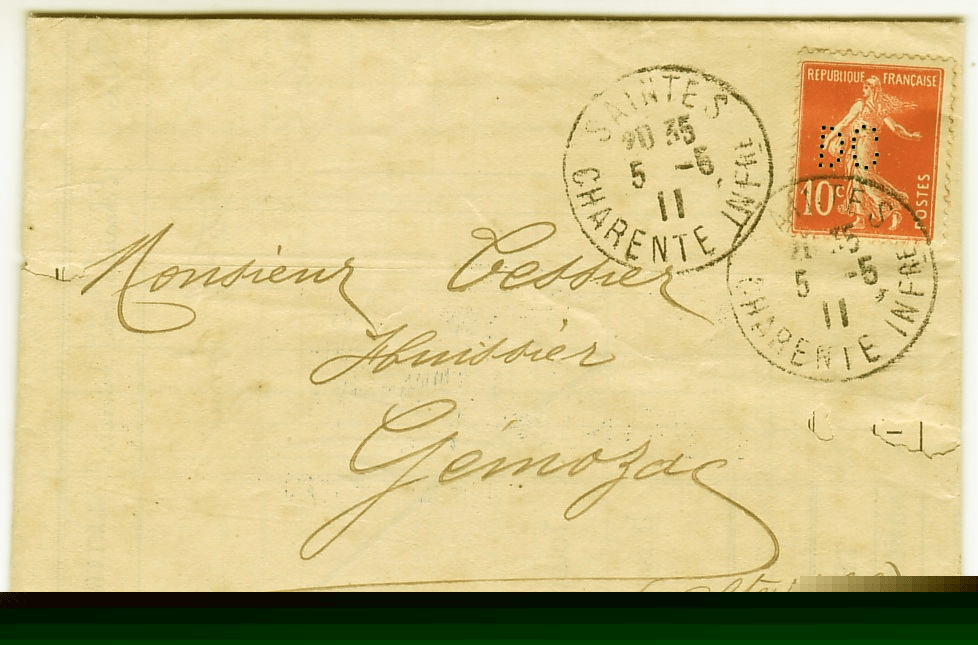 RÉPUBLIQUE FRANÇAISE
10c
POSTES
SAINTES
20 35
5 -5
11
CHARENTE INFRE
35
5 -5
11
CHARENTE INFRE
Monsieur Tessier
Huissier
Gémozac